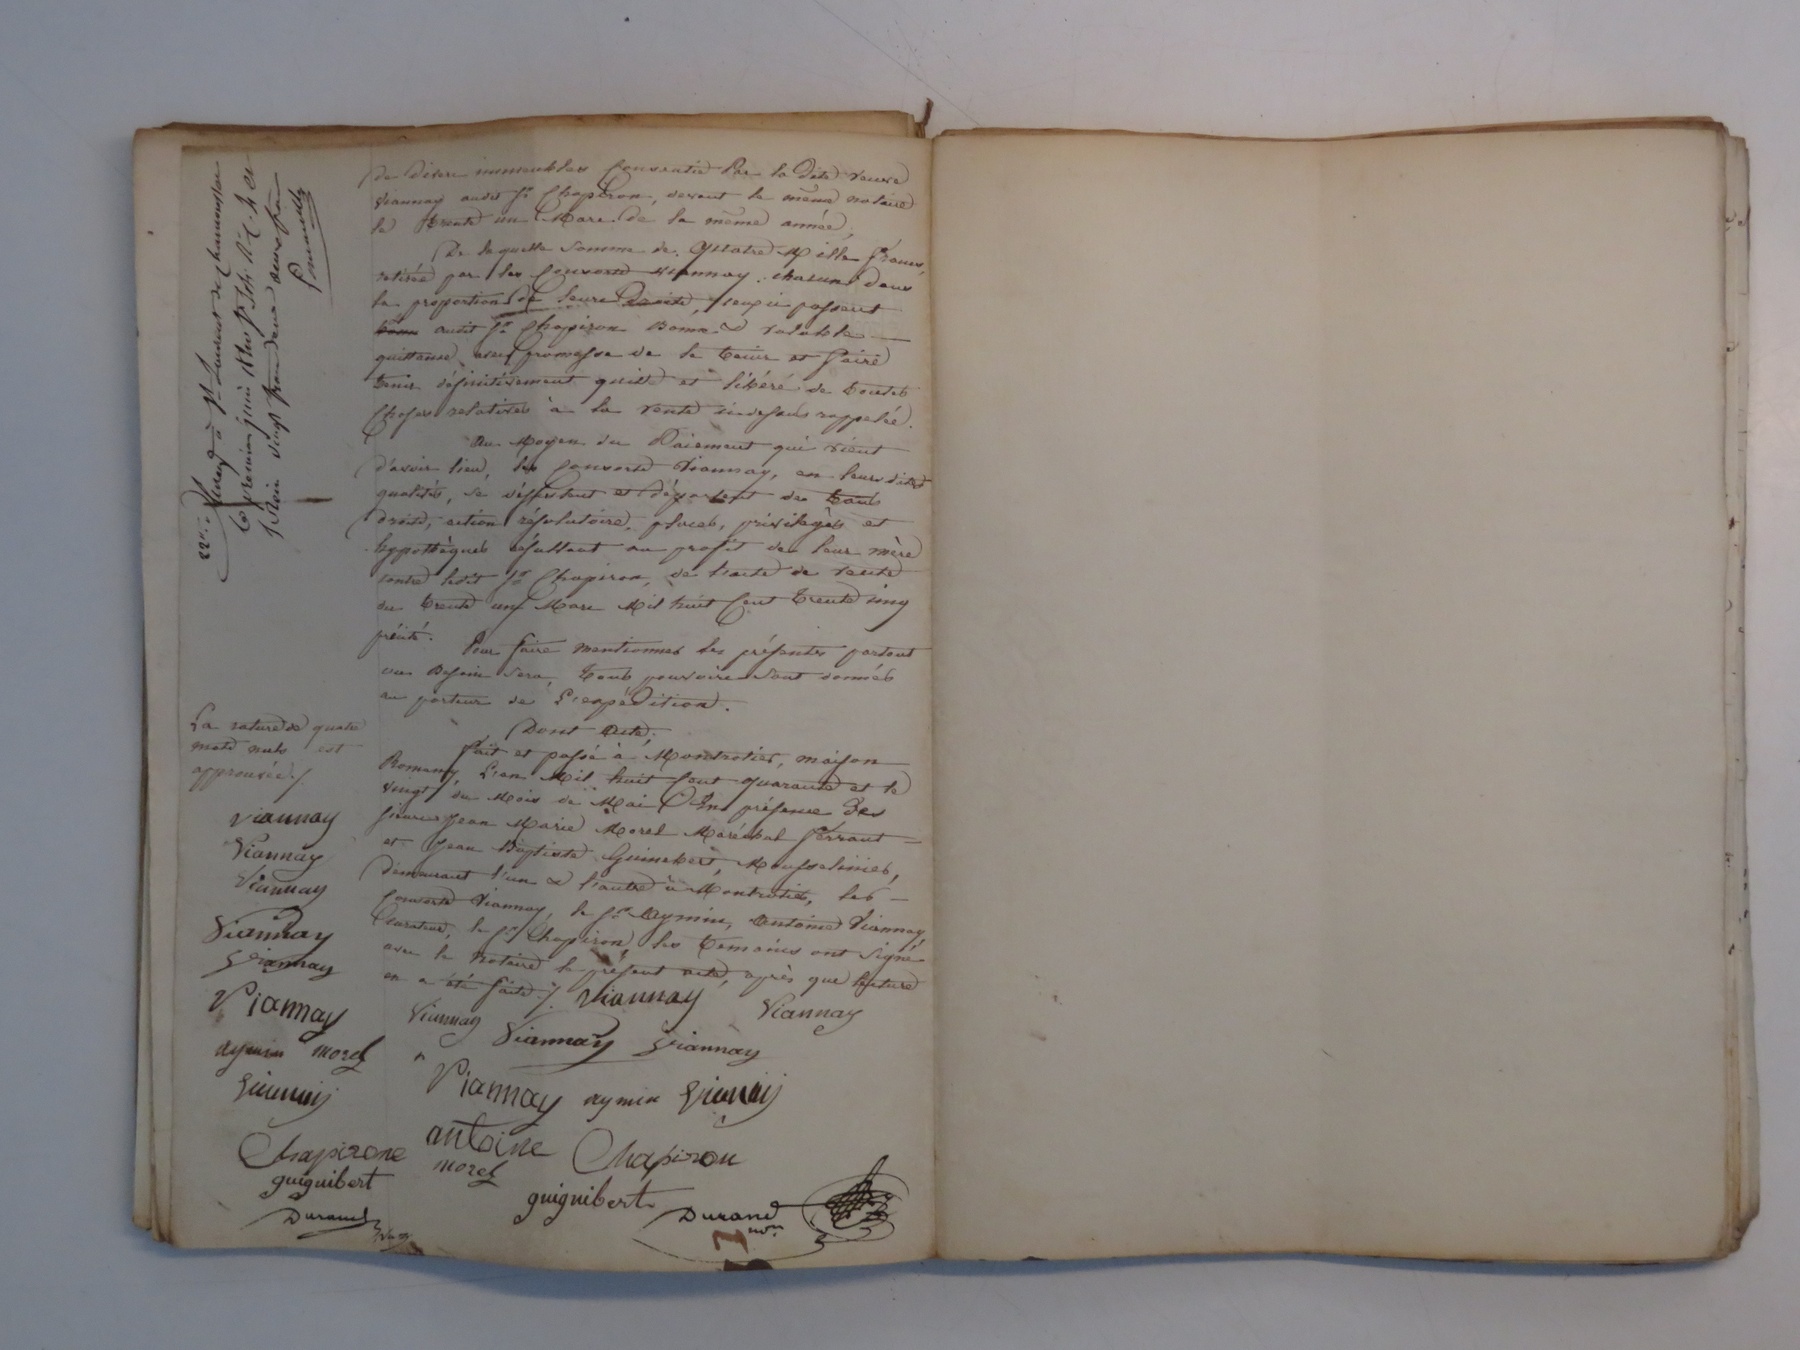 de divers immeubles consentie par la dite veuve
Viannay audit Sr Chapiron, devant le même notaire
le trente un Mars de la même année;
De laquelle somme de quatre Mille francs,
retirée par les consorts Viannay, chacun dans
la proportion de leurs droits, ceux-ci passent
audit Sr Chapiron bonne & valable
quittance avec promesse de le tenir et faire
tenir définitivement quitte et libéré de toutes
choses relatives à la vente ci-dessus rappelée.
Au Moyen du Paiement qui vient
d'avoir lieu, les consorts Viannay, en leurs dites
qualités, se désistent et départent de tous
droits, action résolutoire, places, privilèges et
hypothèques résultant au profit de leur mère
contre ledit Sr Chapiron, de l'acte de vente
du trente un Mars Mil huit Cent trente cinq
précité.
Pour faire mentionner les présentes partout
où besoin sera, tous pouvoirs sont donnés
au porteur de l'expédition.
Dont Acte;
Fait et passé à Montrotier, maison
Romany, L'an Mil huit Cent quarante et le
vingt du Mois de Mai En présence des
sieurs Jean Marie Morel Maréchal ferrant
et Jean Baptiste Guinebert, Mousselinier,
demeurant l'un & l'autre à Montrotier, les
consorts Viannay, le Sr Aymin, Antoine Viannay,
Curateur, le Sr Chapiron, les témoins ont signé
avec le notaire le présent acte, après que lecture
en a été faite ./.
Viannay
Viannay
Viannay
Viannay
Viannay
Viannay
aymin
antoine
Chapiron
morel
guiguibert
Durand
nore
La rature de quatre
mots nuls est
approuvée ./.
Viannay
Viannay
Viannay
Viannay
Viannay
Viannay
aymin morel
Chapirone
guiguibert
Durand
Enreg à St Laurent de Chamousset
le premier juin 1840